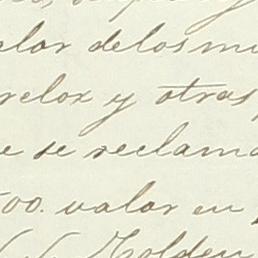 elor de los mu
relox y otras
e se reclama
500. valor en
Holden